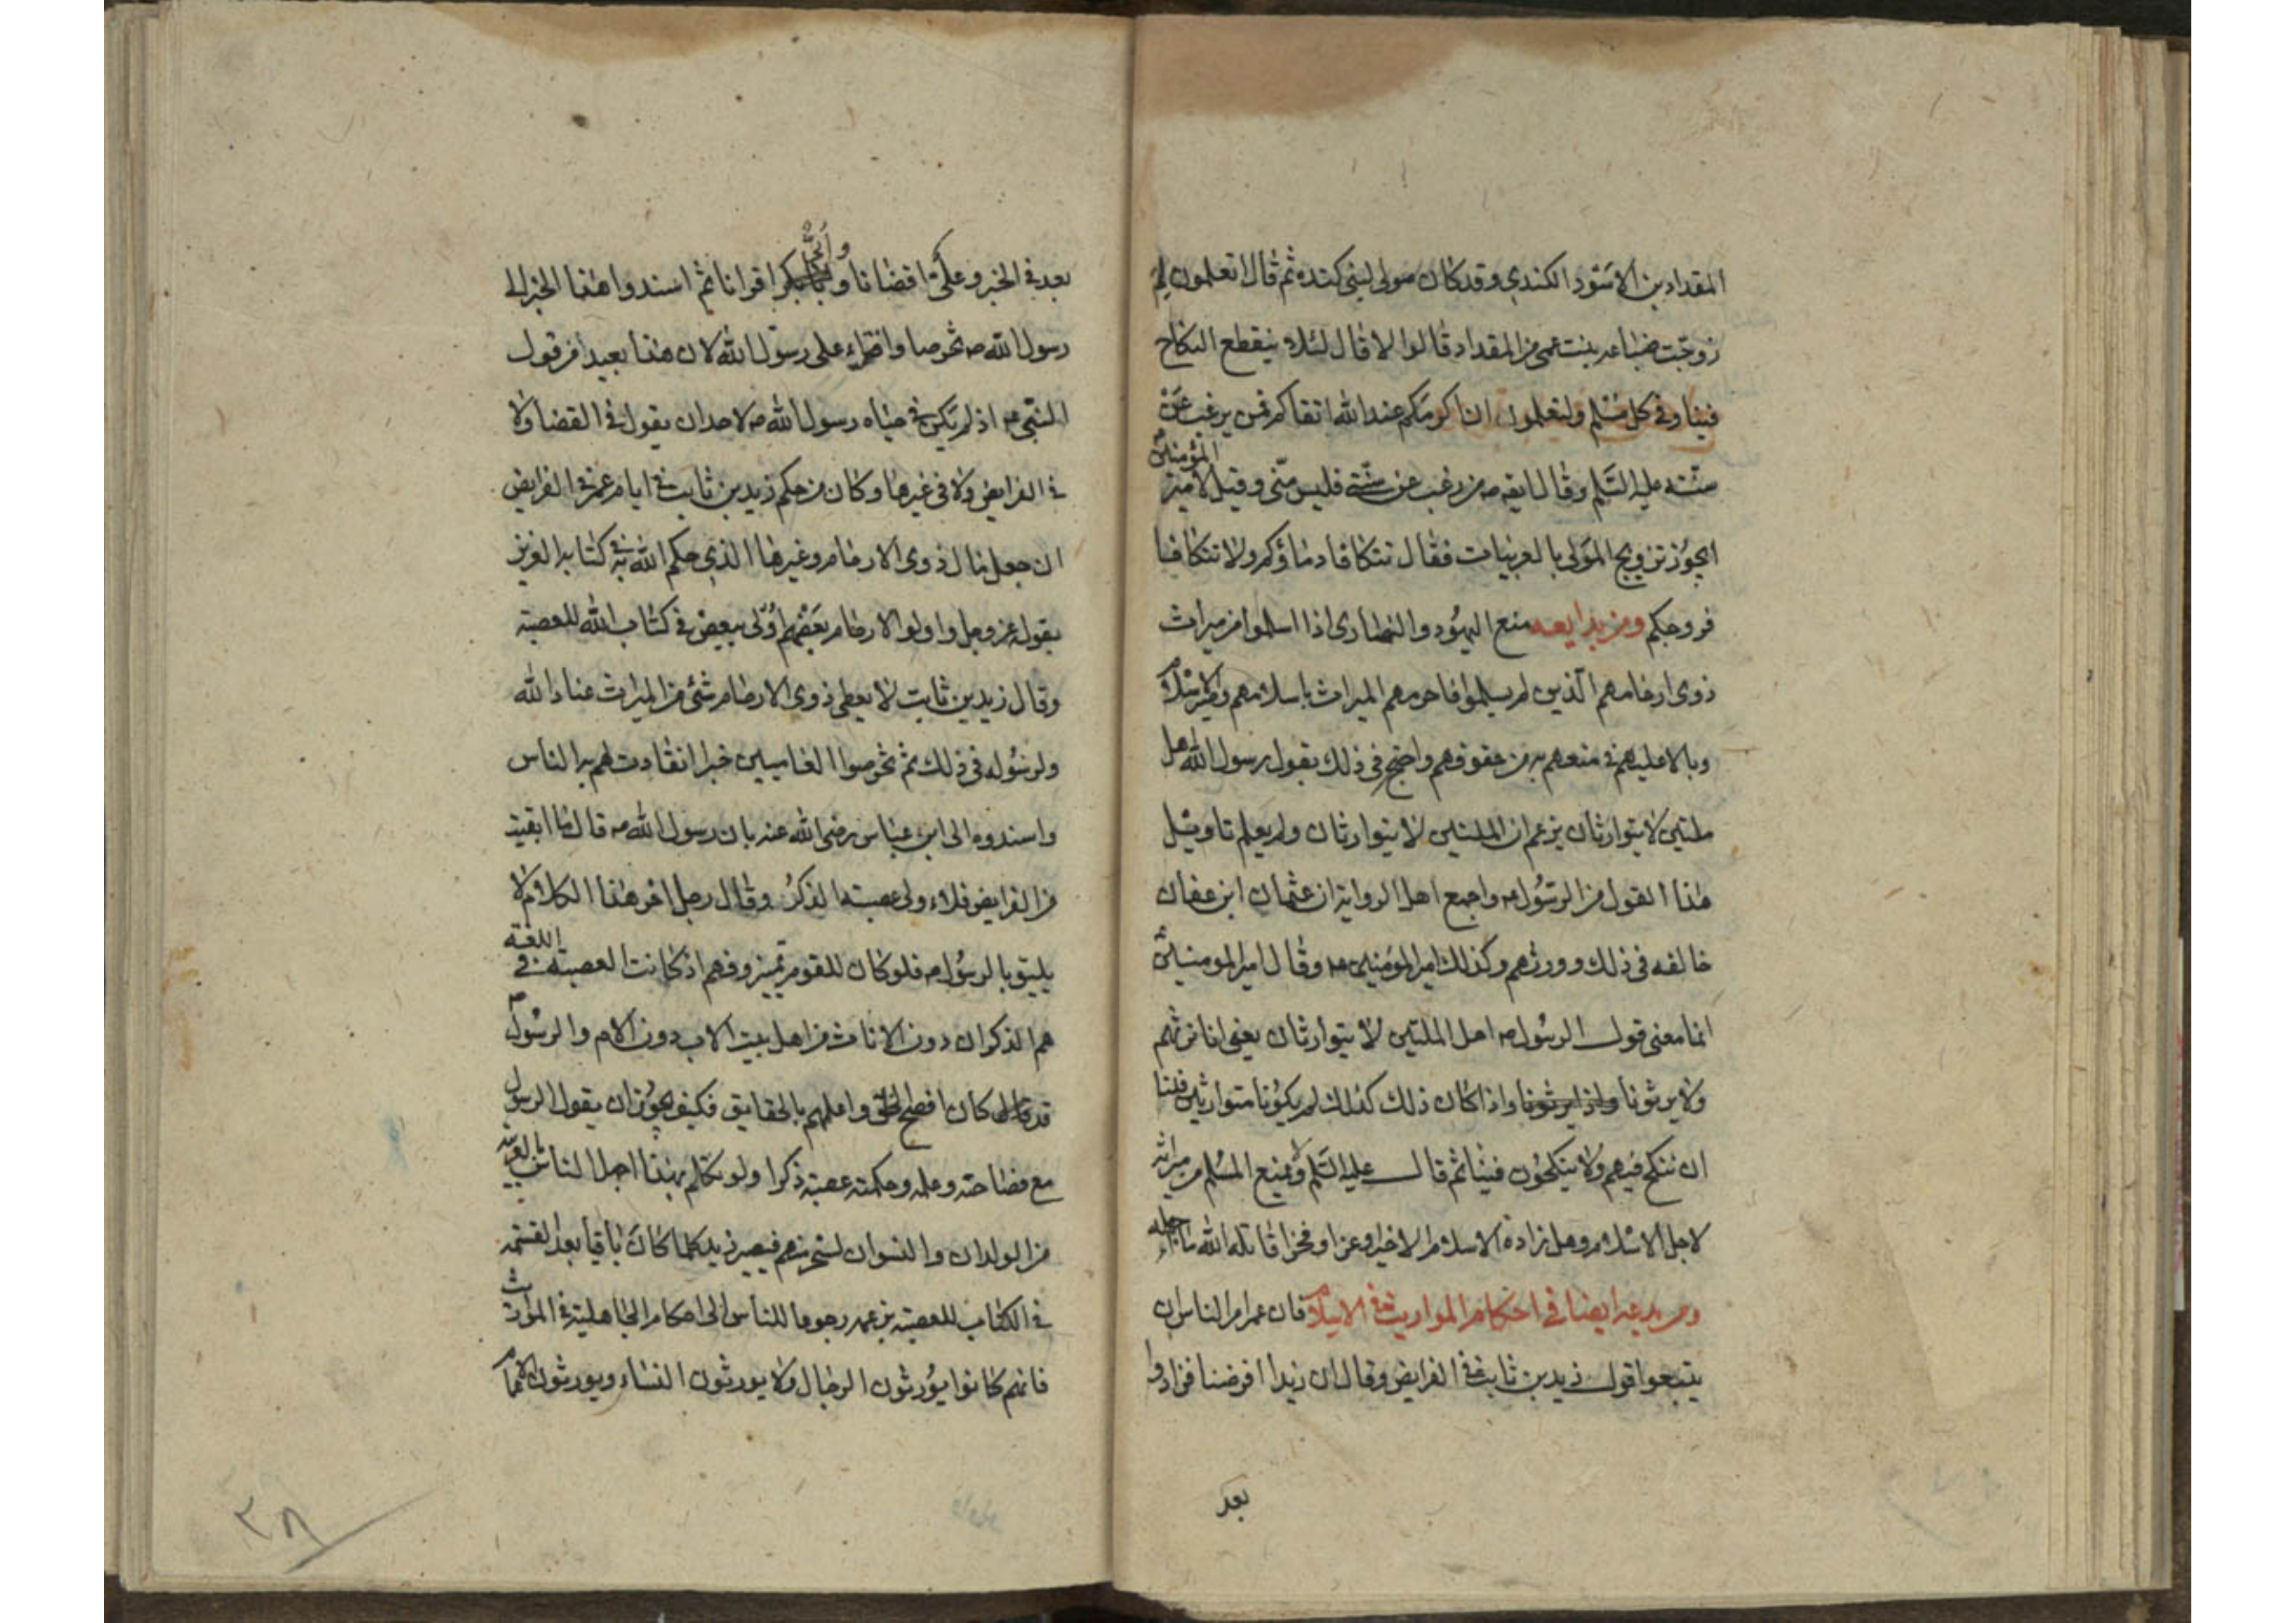 المقداد بن الاسود الكندي وقد كان مولى لبنى كنده ثم قال اتعلمون لم
زوجت ضباعه بنت عمى من المقداد قالوا لا قال لئلا ينقطع النكاح
فينا وفي كل مسلم ولتعلمون ان اكرمكم عند الله اتقاكم فمن يرغب عن
سنته عليه السلم وقال ايضه من رغب عن سنتى فليس منى وقيل لامير المؤمنين
ايجوز تزويج الموالى بالعربيات فقال تتكافا دماؤكم ولا تتكافا
فروجكم ومن بدايعه منع اليهود والنصارى اذا اسلموا من ميراث
ذوى ارحامهم الذين لم يسلموا فاحرمهم الميراث باسلامهم
وبالا عليهم في منعهم به من حقوقهم واحتج فى ذلك بقول رسول الله اهل
ملتين لا يتوارثان يزعم ان الملتين لا يتوارثان ولم يعلم تاويل
هذا القول من الرسول ص واجمع اهل الرواية ان عثمان ابن عفان
خالفه فى ذلك وورثهم وكذلك امير المؤمنين وقال امير المومنين
انما معنى قول الرسول ص اهل الملتين لا يتوارثان يعنى انا نرثهم
ولا يرثونا واذا كان ذلك كذلك لم يكونا متوارثين فلنا
ان ننكح فيهم ولا ينكحون فينا ثم قال عليه السلم ولا يمنع المسلم من ميراثه
لاجل الاسلام وهل زاده الاسلام الا خيرا وعزا وفخرا قاتله الله ما اجهله
ومن بدعه ايضا في احكام المواريث في الاسلام فان عمر امر الناس ان
يتبعوا قول زيد بن ثابت في الفرايض وقال ان زيدا افرضنا فزادوا
بعد
بعد في الخبر وعلى اقضانا وأبىّ اقرانا ثم اسندوا هذا الخبر الى
رسول الله ص تخرصا وافتراء على رسول الله لان هذا بعيدا من قول
النبي ص اذ لم يكن في حياه رسول الله ص لاحد ان يقول في القضا ولا
في الفرايض ولا فى غيرها وكان من حكم زيد بن ثابت في ايام عمر في الفرايض
ان جعل مال ذوى الارحام وغيرها الذي حكم الله به في كتابه العزيز
بقوله عز وجل واولو الارحام بعضهم اولى ببعض في كتاب الله للعصبة
وقال زيد بن ثابت لا يعطى ذوى الارحام شئ من الميراث عنادا لله
ولرسوله فى ذلك ثم تخرصوا الغاسيين خبرا انقادت لهم به الناس
واسندوه الى ابن عباس رضى الله عنه بان رسول الله ص قال ما ابقيت
من الفرايض فلاولى عصبته الذكر وقال رجل اخر هذا الكلام لا
يليق بالرسول ص فلو كان للقوم تمييز وفهم اذ كانت العصبة في اللغة
هم الذكران دون الاناث من اهل بيت الاب دون الام والرسول ص
قد كان افصح الخلق واعلمهم بالحقايق فكيف يجوز ان يقول الرسول
مع فصاحته وعلمه وحكمته عصبة ذكرا ولو تكلم بهذا اجهل الناس بالعربية
من الولدان والنسوان لسخر منهم فيصير زيد كلما كان باقيا بعد القسمة
في الكتاب للعصبة بزعمه رجوعا للناس الى احكام الجاهلية في المواريث
فانهم كانوا يورثون الرجال ولا يورثون النساء ويورثون الاعمام
٣٨